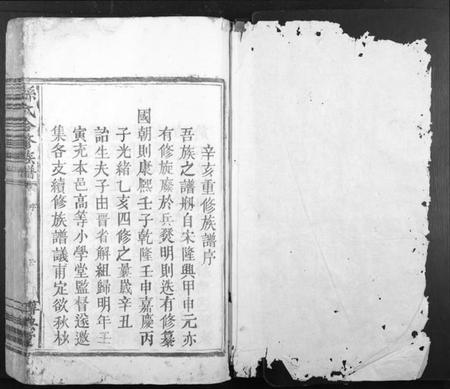 辛亥重修族譜序
吾族之譜剏自宋隆興甲申元亦
有修旋廢於兵燹明則迭有修纂
國朝則康熙壬子乾隆壬申嘉慶丙
子光緒乙亥四修之彙歲辛丑
詒生夫子由晋省解組歸明年壬
寅充本邑高等小學堂監督遂邀
集各支續修族譜議甫定欲秋枌
孫氏合修族譜
序